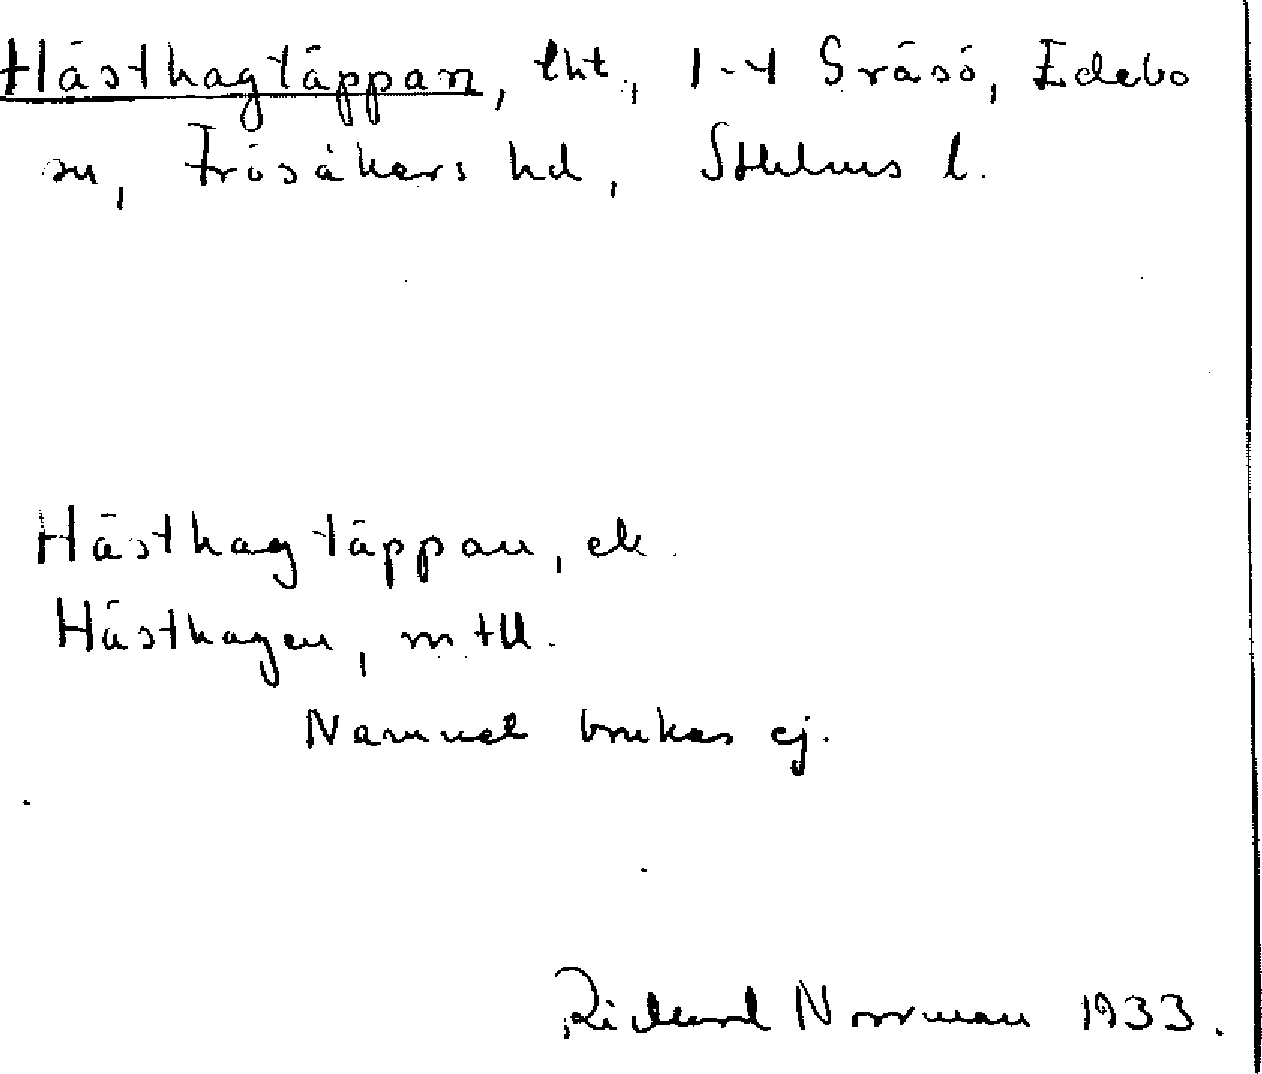 Hästhagtäppan, lht., 1-4 Sräsö, Edebo
sn, Frösåkers hd, Sthlms l.
Hästhagtäppan, ek.
Hästhagen, mtll.
Namnet brukas ej.
Rickard Norrman 1933.